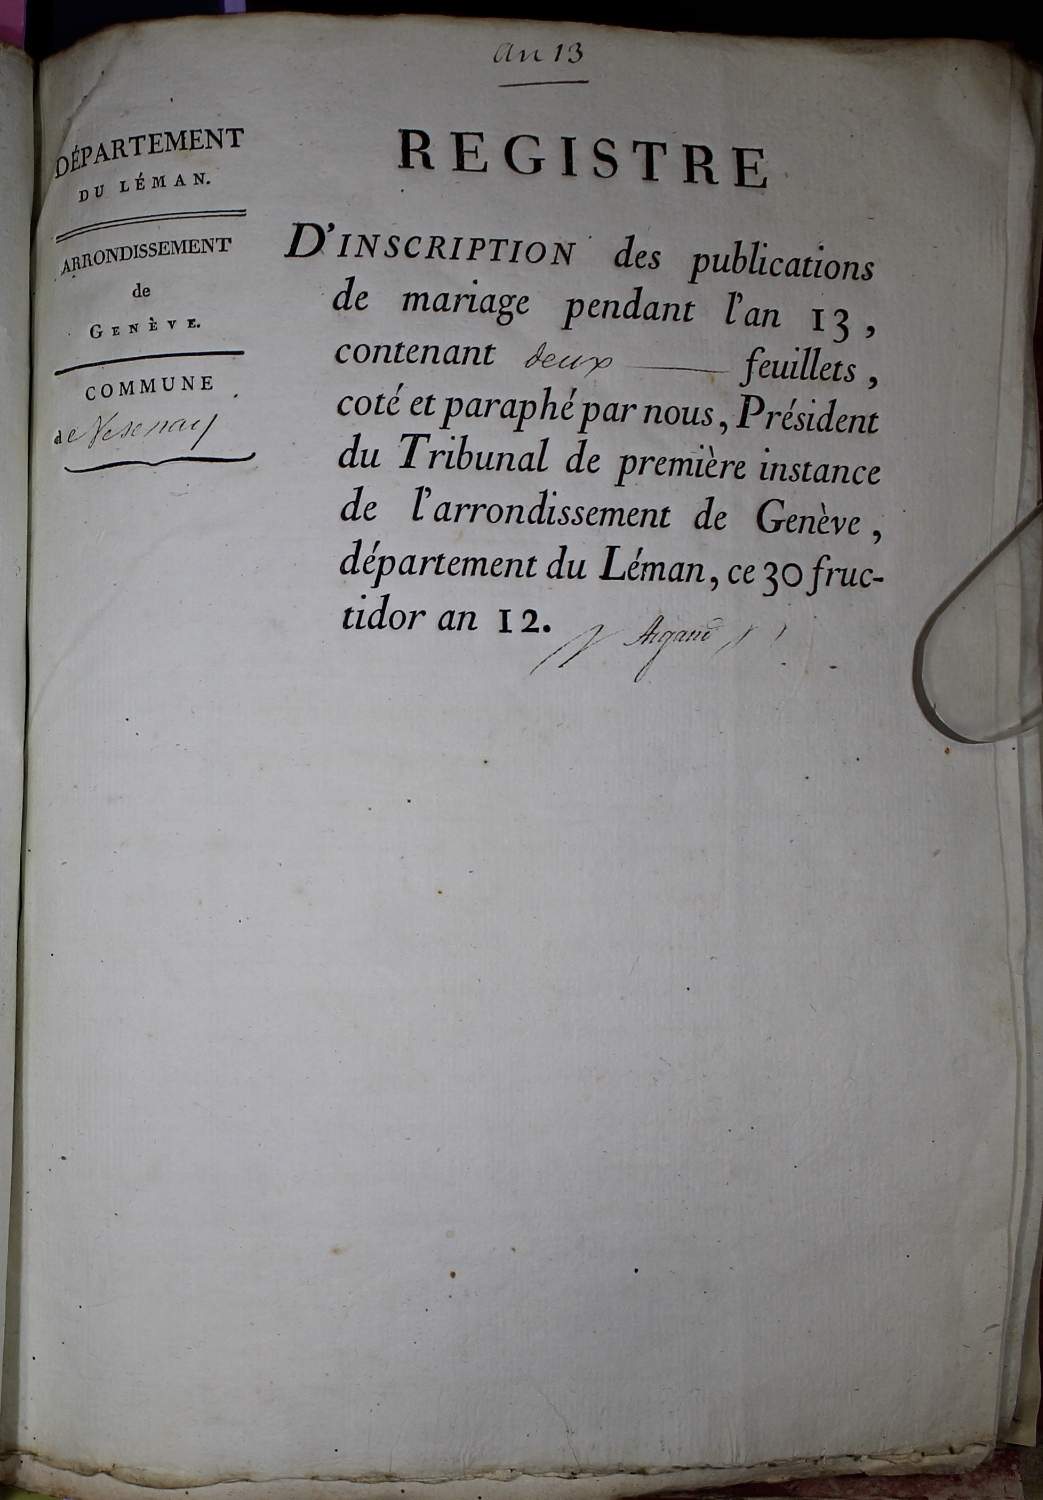 an 13
DÉPARTEMENT
DU LÉMAN.
ARRONDISSEMENT
de
GENÈVE.
COMMUNE
de Vesenay
REGISTRE
D'INSCRIPTION des publications
de mariage pendant l'an 13,
contenant deux feuillets,
coté et paraphé par nous, Président
du Tribunal de première instance
de l'arrondissement de Genève,
département du Léman, ce 30 fruc-
tidor an 12.
Argand